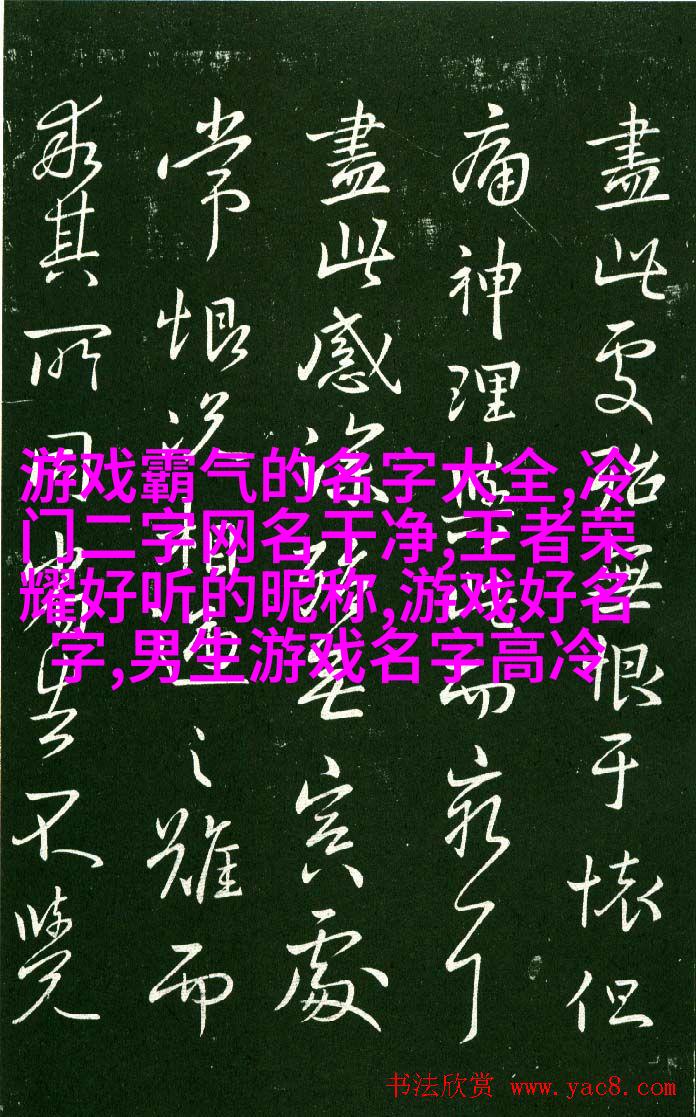 盡此處殆無恨于懷但
痛神理
盡此感深冥處
常恨況相遇之難而
其所同
游戏霸气的名字大全,冷
门二字网名干净,王者荣
耀好听的昵称,游戏好名
字,男生游戏名字高冷
书法欣赏 www.yac8.com